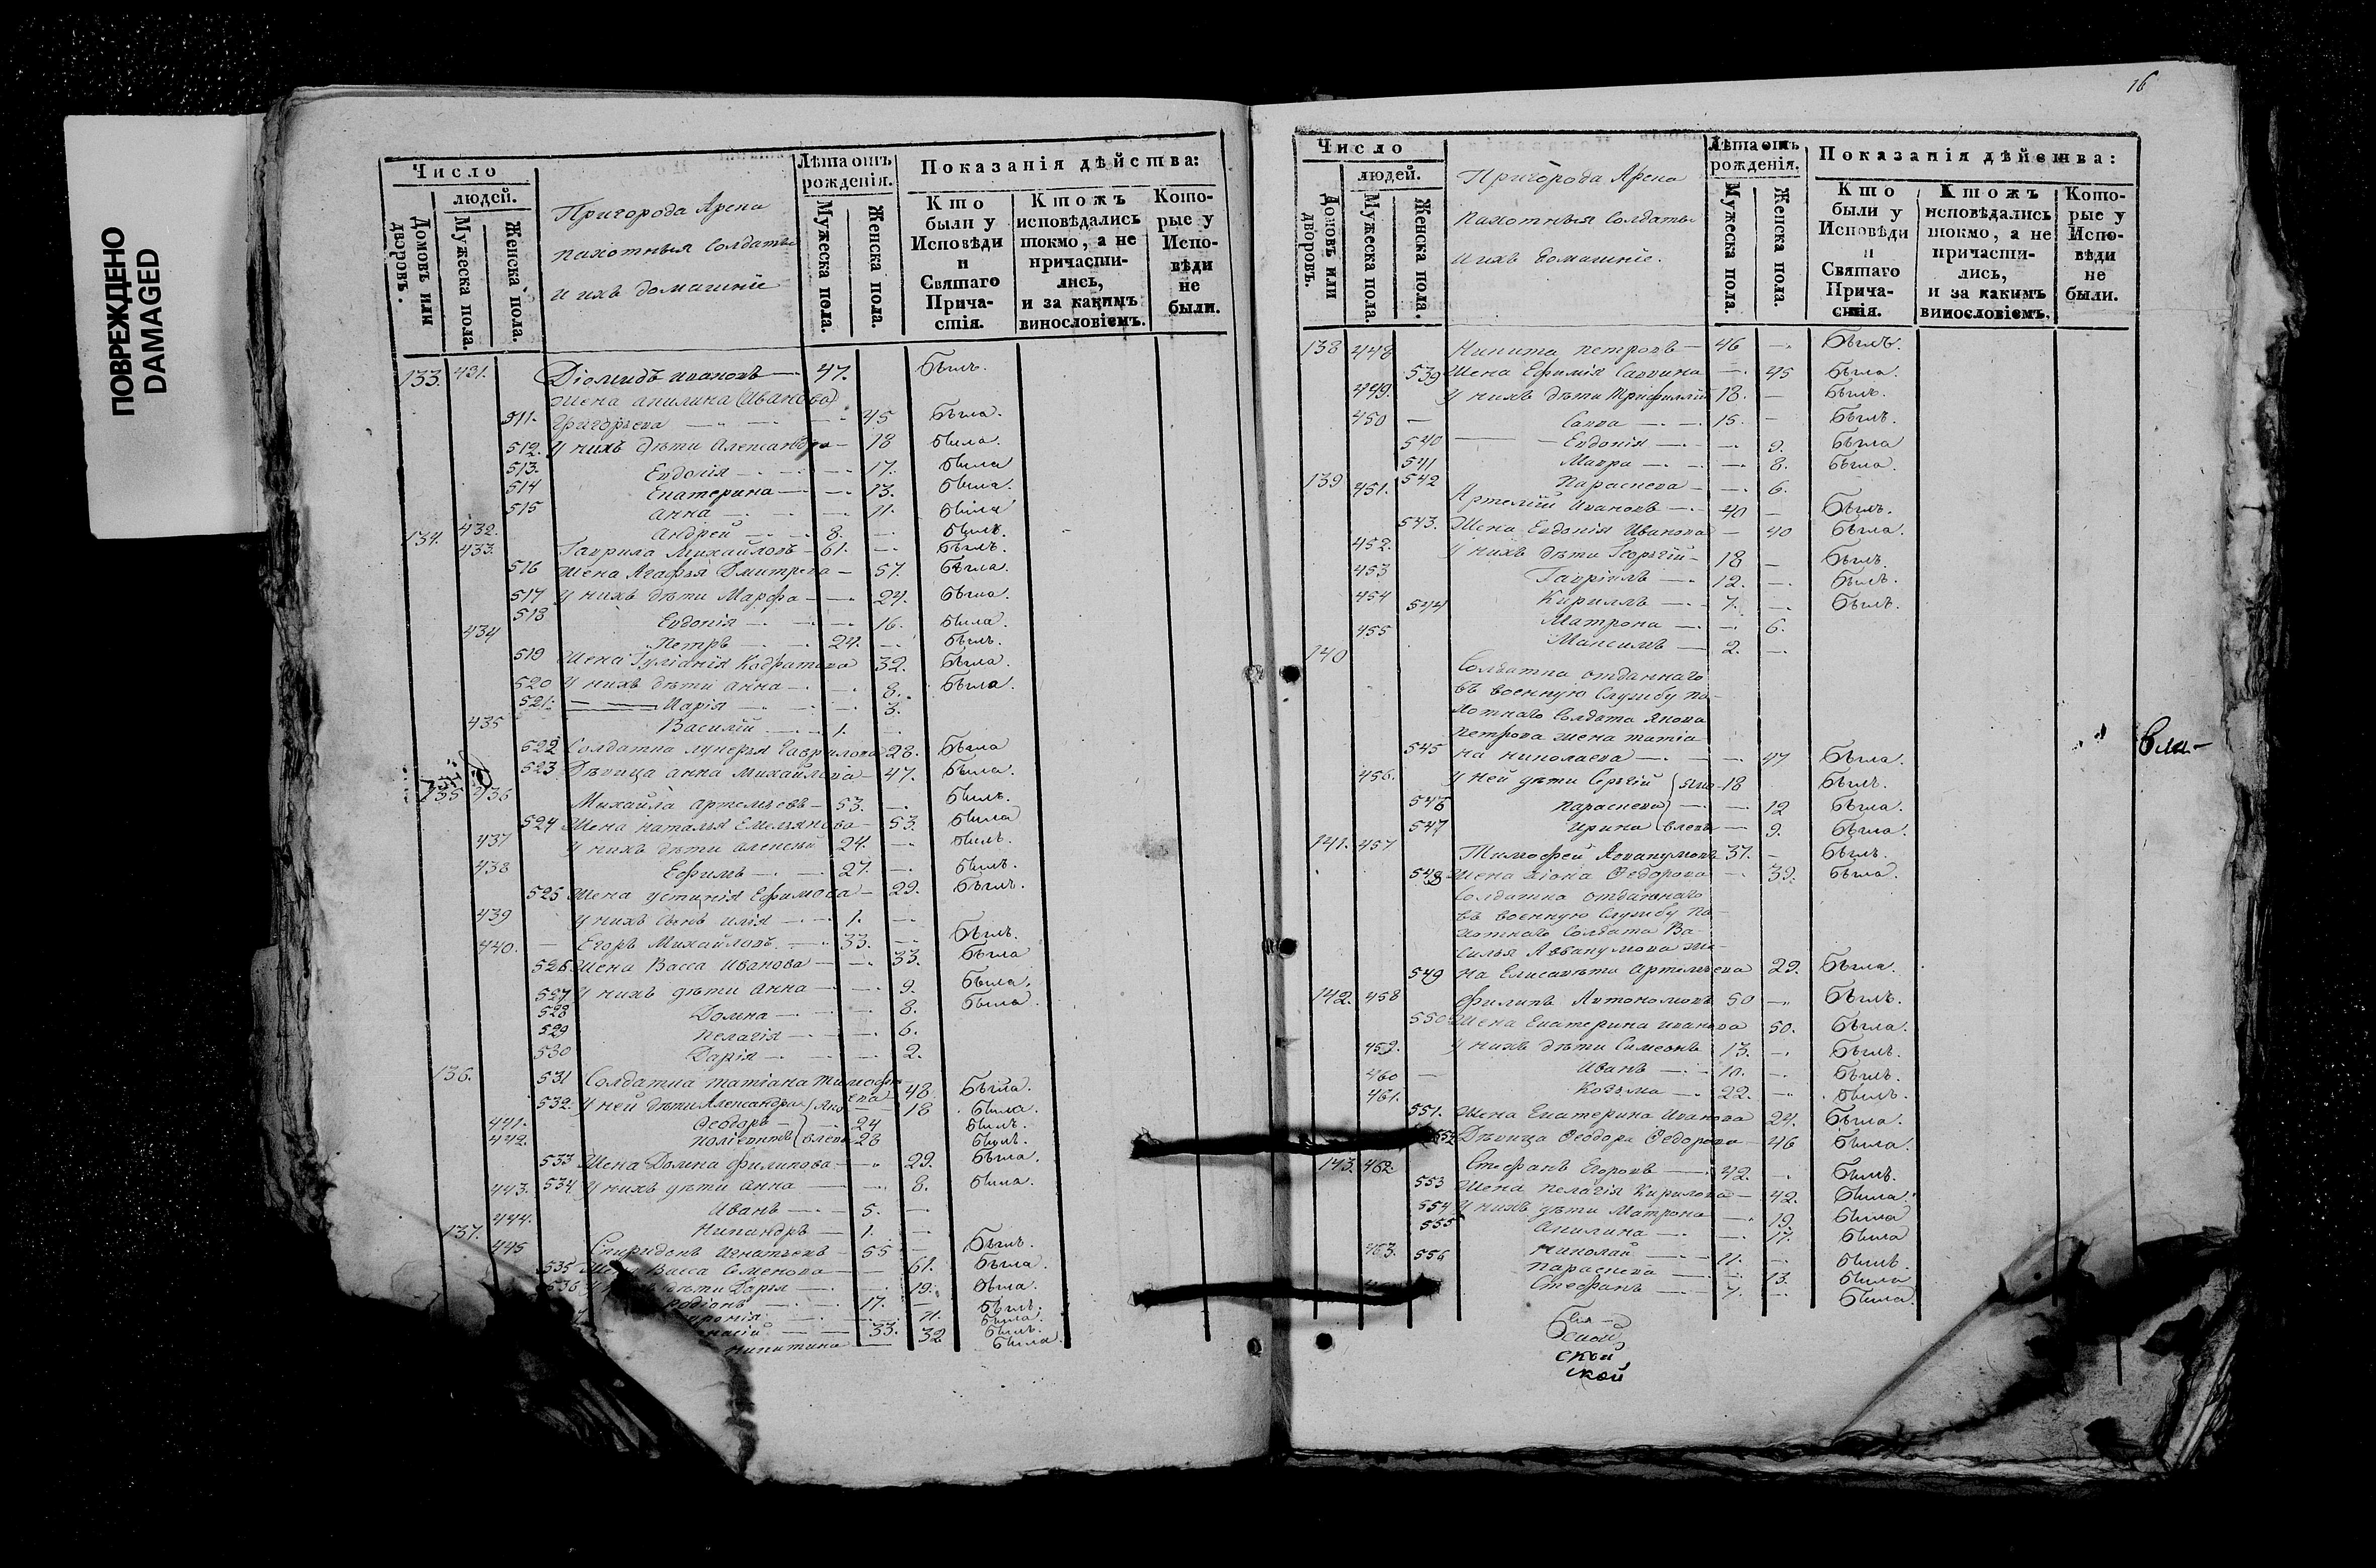 ПОВРЕЖДЕНО
DAMAGED
Число
людей.
Домовъ или дворовъ.
Мужеска пола.
Женска пола.
Пригорода Арска
пахотныя солдаты
и ихъ домашніе
Лѣта отъ рожденія.
Мужеска пола.
Женска пола.
Показанія дѣйства:
Кто были у Исповѣди и Святаго Причастія.
Ктожъ исповѣдались токмо, а не причастились, и за какимъ винословіемъ.
Которые у Исповѣди не были.
133. 431. Діомидъ Ивановъ — 47. Былъ.
Жена Акилина (Иванова)
511. Григорьева — 45 Была.
512. У нихъ дѣти Александра — 18 Была.
513. Евдокія — 17. Была
514 Екатерина — 13. Была.
515 Анна — 11. Была
432. Андрей — 8. — Былъ.
134. 433. Гаврила Михайловъ — 61. — Былъ.
516 Жена Агафья Дмитрева — 57. Была.
517 У нихъ дѣти Марфа — 24. Была.
518 Евдокія — 16. Была.
434 Петръ — 24. — Былъ.
519 Жена Гуліанія Кодратова 32. Была.
520 У нихъ дѣти Анна — 8. Была.
521. — Марія — 3.
435 Василій — 1. —
522 Солдатка Лукерья Гаврилова 28. Была
523 Дѣвица Анна Михайлова — 47. Была.
135 436 Михайла Артемьевъ — 53. — Былъ.
524 Жена Наталья Емельянова — 53. Была
437 У нихъ дѣти Алексѣй 24. — Былъ.
438 Ефимъ — 27. — Былъ.
525 Жена Устинія Ефимова — 29. Былъ.
439 У нихъ сынъ Илія — 1. —
440. — Егоръ Михайловъ — 33. — Былъ.
526 Жена Васса Иванова — 33. Была
527. У нихъ дѣти Анна — 9. Была.
528 Домна — 8. Была.
529 Пелагія — 6.
530 Дарія — 2.
136. 531 Солдатка Татіана Тимофеева 48. Была.
532. У ней дѣти Александра (Яко — 18 Была.
441. Феодоръ — 24 Былъ.
442. Поліевктъ (влевы 28 Былъ.
533 Жена Домна Филипова — 29. Была.
534. У нихъ дѣти Анна — 8. Была.
443. Иванъ — 5. —
444. Никандръ — 1. —
137. 445 Спиридонъ Игнатьевъ — 55 — Былъ.
535 Жена Васса Семенова — 61. Была.
536 У дѣти Дарья — 19. Была.
родіонъ — 17. — Былъ.
11. Была.
33. Былъ.
Никитина — 32 Была.
16
Число
людей.
Домовъ или дворовъ.
Мужеска пола.
Женска пола.
Пригорода Арска
пахотныя солдаты
и ихъ домашніе.
Лѣта отъ рожденія.
Мужеска пола.
Женска пола.
Показанія дѣйства:
Кто были у Исповѣди и Святаго Причастія.
Ктожъ исповѣдались токмо, а не причастились, и за какимъ винословіемъ.
Которые у Исповѣди не были.
138 448 Никита Петровъ — 46 — Былъ.
539 Жена Ефимія Саввина — 45 Была.
449. У нихъ дѣти Трифиллій 18. — Былъ.
450 — Савва — 15. — Былъ.
540 — Евдокія — 9. Была
541 Мавра — 8. Была.
542 Параскева — 6.
139 451. Артемій Ивановъ — 40 — Былъ.
543. Жена Евдокія Иванова — 40 Была.
452. У нихъ дѣти Георгій — 18 — Былъ.
453 Гавріилъ — 12. — Былъ.
454 Кириллъ — 7. — Былъ.
544 Матрона — 6.
455 Максимъ — 2. —
140 Солдатка отданнаго
въ военную службу па-
хотнаго солдата Якова
Петрова жена Татіа-
545 на Николаева — 47 Была.
456. У ней дѣти Сергій (Яко — 18 Былъ.
546 Параскева — 12 Была.
547 Ирина (влевы — 9. Была.
141. 457 Тимофей Аввакумовъ 37. — Былъ.
548 Жена Хіона Федорова — 39. Была.
Солдатка отданнаго
въ военную службу па-
хотнаго солдата Ва-
силья Аввакумова же-
549 на Елисавета Артемьева 29. Была.
142. 458 Филипъ Автономовъ 50 — Былъ.
550 Жена Екатерина Иванова 50. Была.
459. У нихъ дѣти Симеонъ 13. — Былъ.
460 — Иванъ — 10. — Былъ.
461. Козьма — 22. — Былъ.
551. Жена Екатерина Иванова 24. Была.
552 Дѣвица Феодора Федорова — 46 Была.
143. 462. Стефанъ Егоровъ — 42. — Былъ.
553 Жена Пелагія Кирилова — 42. Была.
554 У нихъ дѣти Матрона — 19. Была
555 Акилина — 17. Была
463. Николай — 11. — Былъ.
556 Параскева — 13. Была
Стефанъ — 7. — Была.
ской
ской